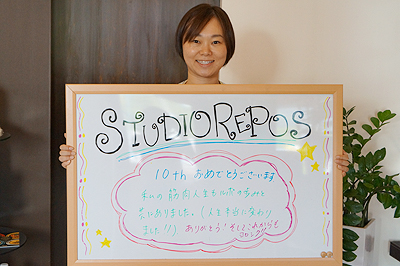 STUDIOREPOS
10th おめでとうございます
私の筋肉人生も
共にありました。(人生本当に変わり
ました!!) ありがとう! そしてこれからも